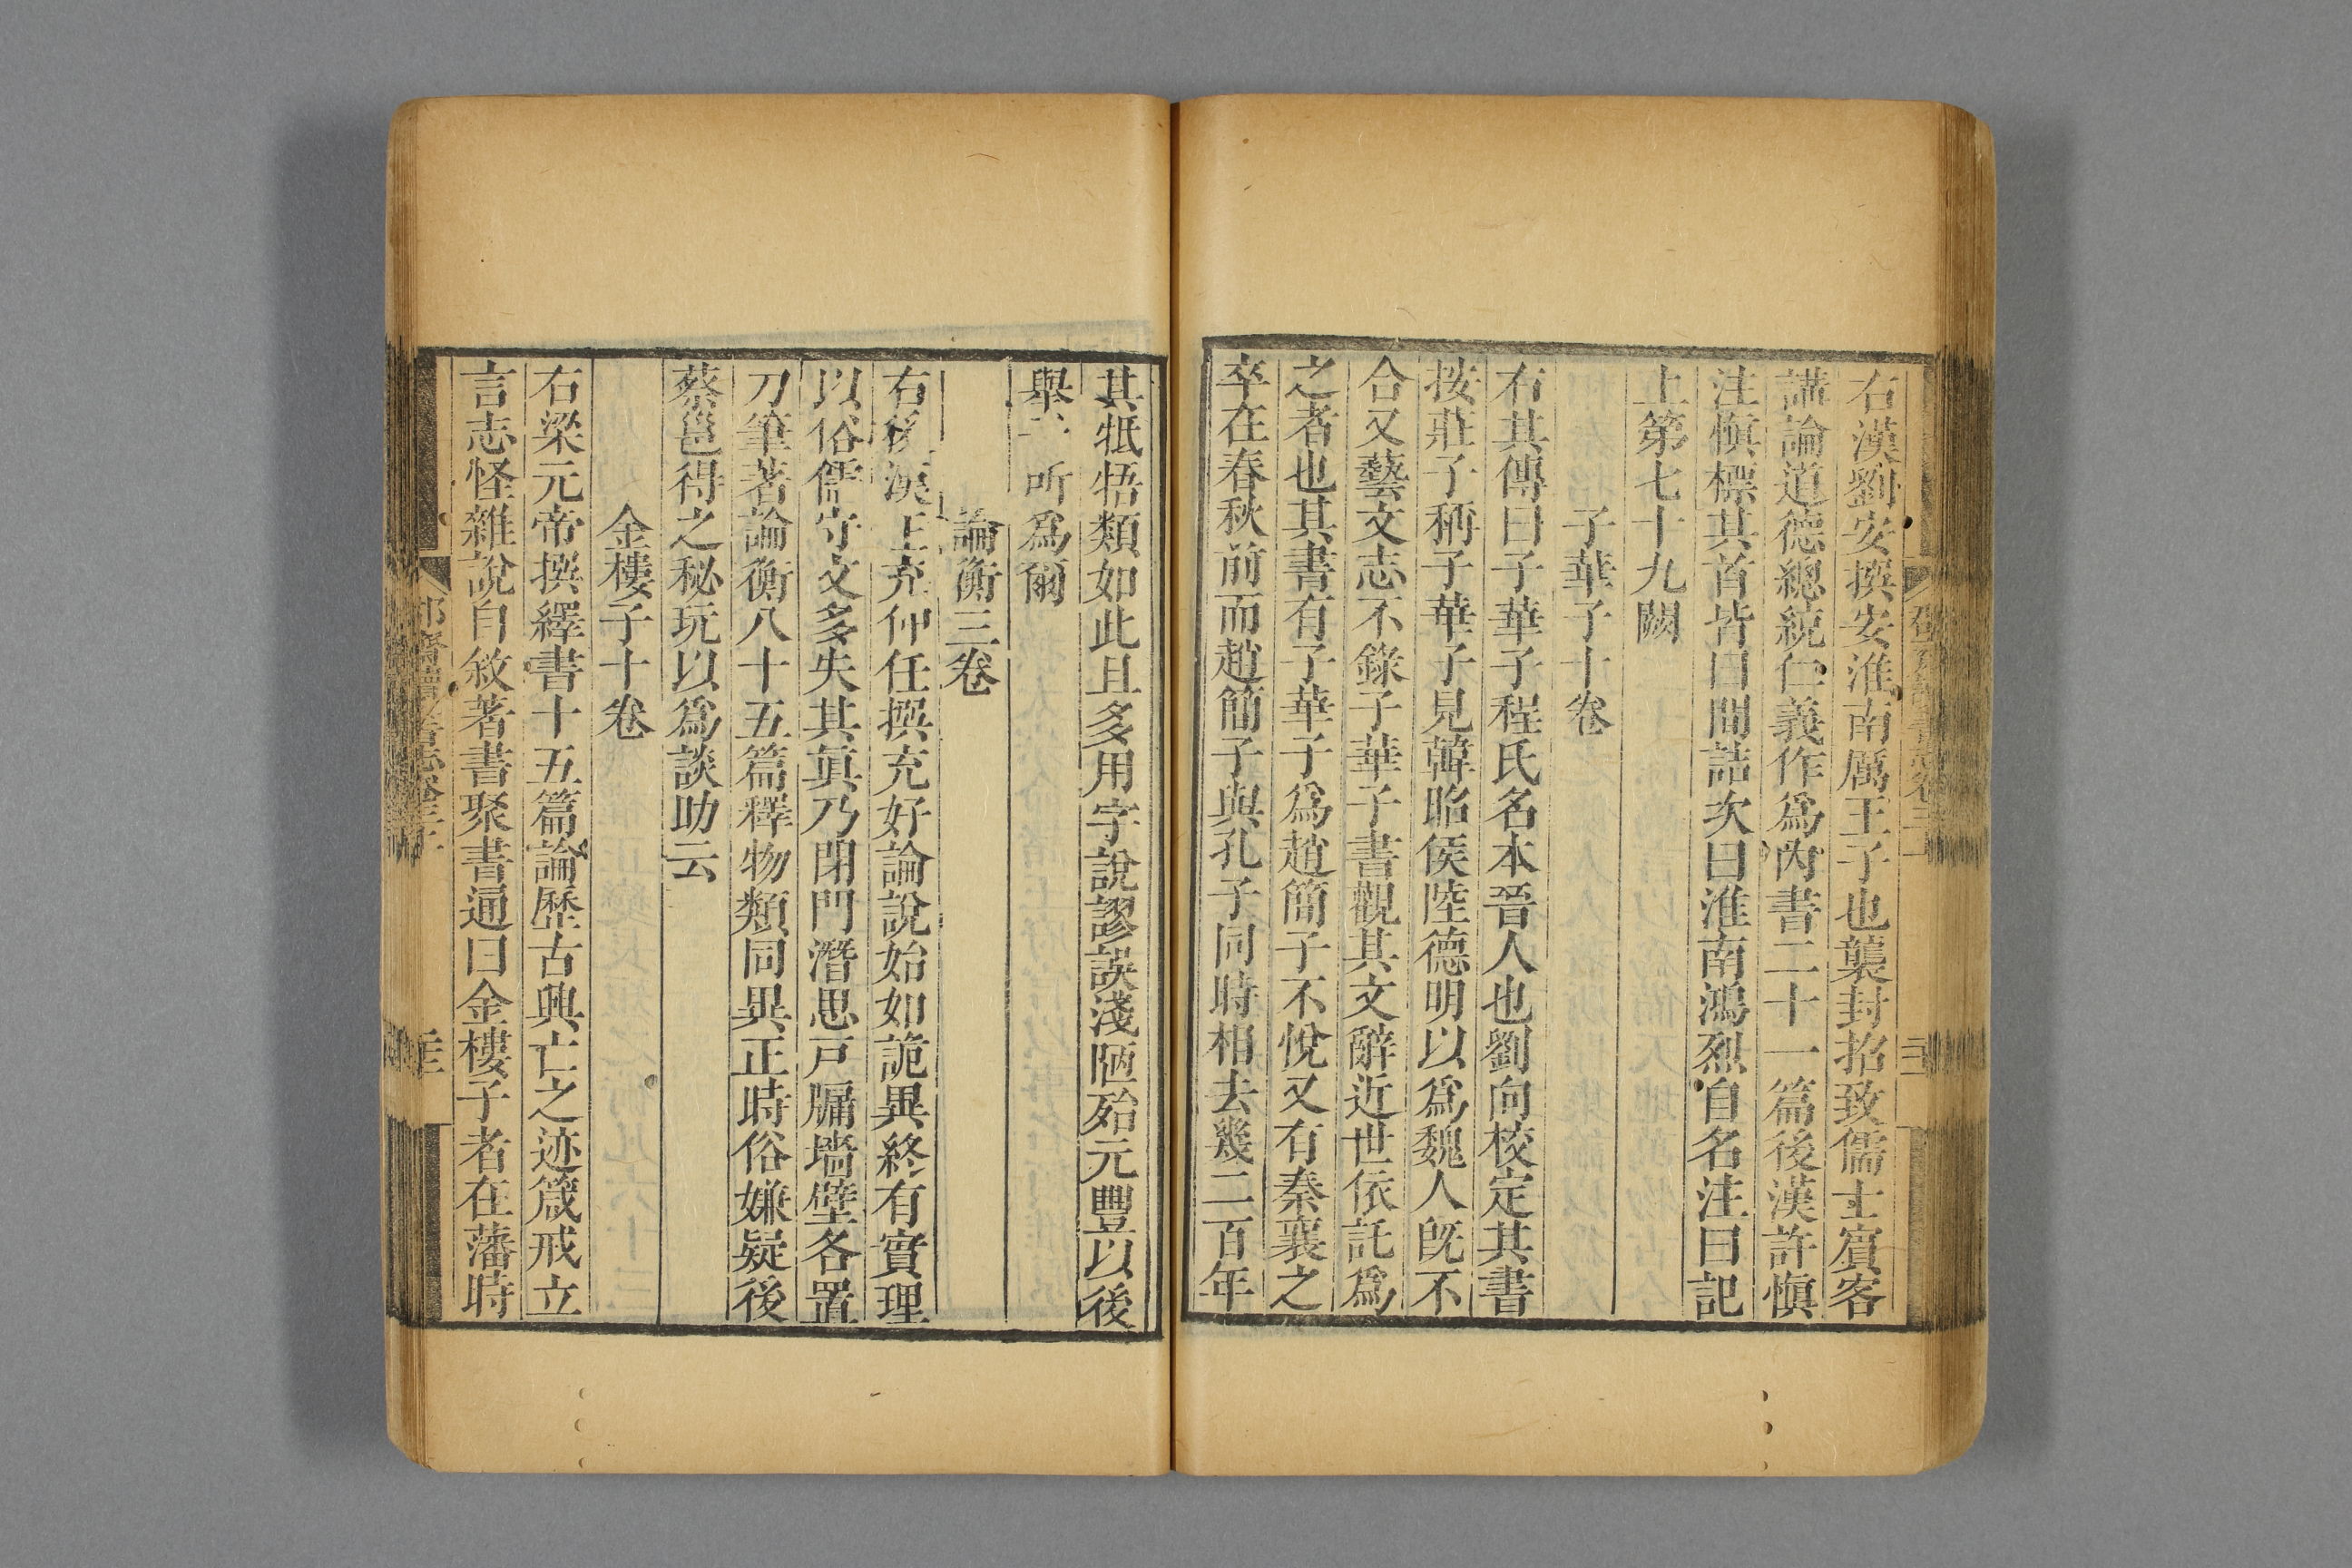 右漢劉安撰安淮南厲王子也襲封招致儒士賓客
講論道德總統仁義作爲內書二十一篇後漢許愼
注愼標其首皆曰間詁次曰淮南鴻烈自名注曰記
上第七十九闕
子華子十卷
右其傳曰子華子程氏名本晉人也劉向校定其書
按莊子稱子華子見韓昭侯陸德明以爲魏人既不
合又藝文志不錄子華子書觀其文辭近世依託爲
之者也其書有子華子爲趙簡子不悅又有秦襄之
卒在春秋前而趙簡子與孔子同時相去幾二百年
其牴牾類如此且多用字說謬誤淺陋殆元豐以後
舉 所爲爾
論衡三卷
右後漢王充仲任撰充好論說始如詭異終有實理
以俗儒守文多失其眞乃閉門潛思戸牖墻壁各置
刀筆著論衡八十五篇釋物類同異正時俗嫌疑後
蔡邕得之秘玩以爲談助云
金樓子十卷
右梁元帝撰繹書十五篇論歷古興亡之迹箴戒立
言志怪雜說自敘著書聚書通曰金樓子者在藩時